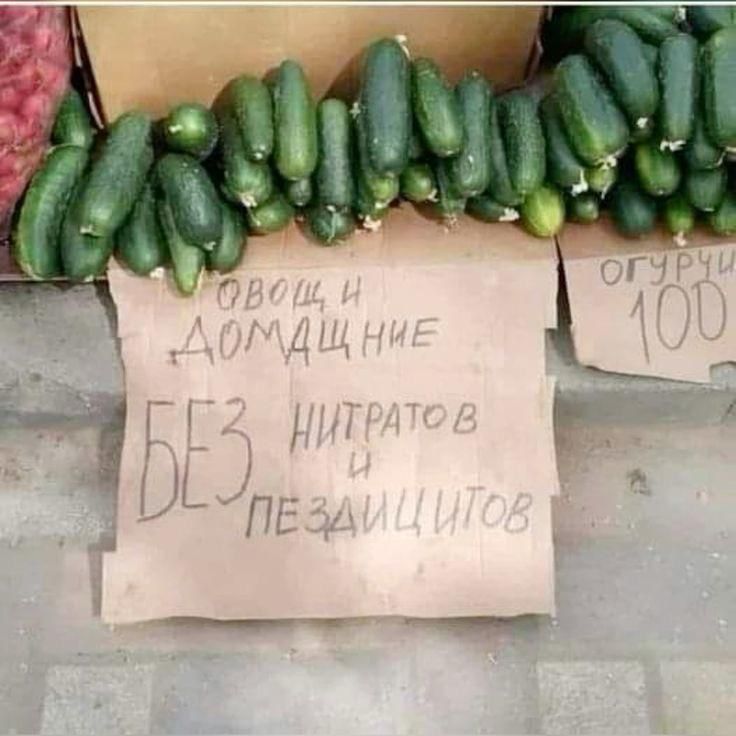 ОВОЩИ
ДОМАЩНИЕ
БЕЗ НИТРАТОВ
И
ПЕЗДИЦИТОВ
ОГУРЧИ
100